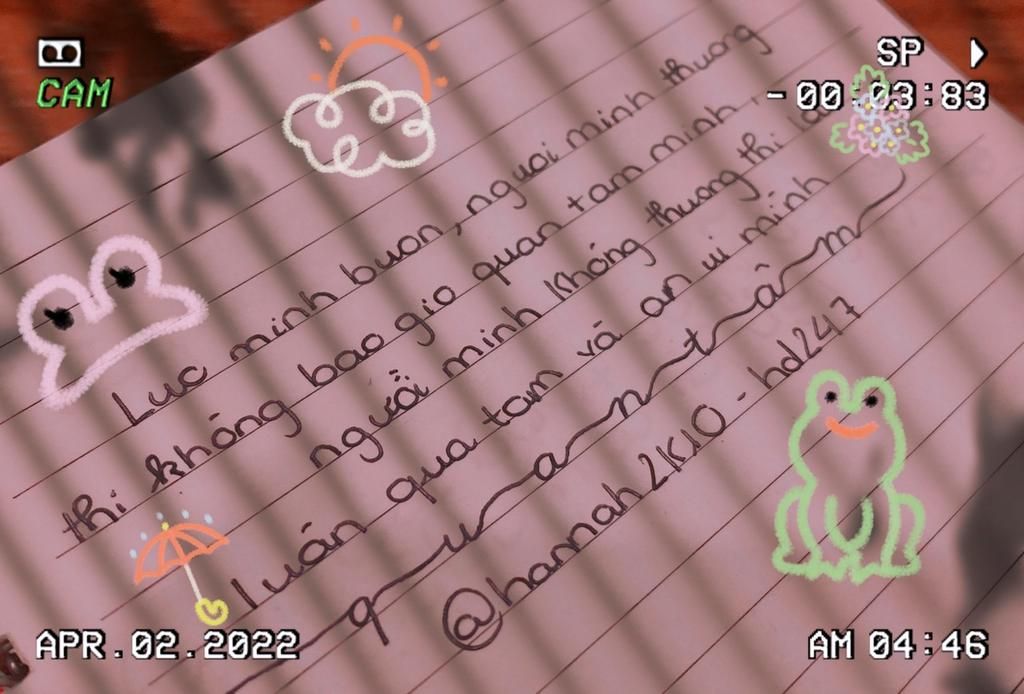 CAM
SP
-00:03:83
Luc minh buon, nguoi minh thuong
thi không bao gio quan tam minh,
người minh không thuong thi lai
luôn qua tam và an ui minh
q u a n t â m
@hannah2k10 - hd247
APR.02.2022
AM 04:46